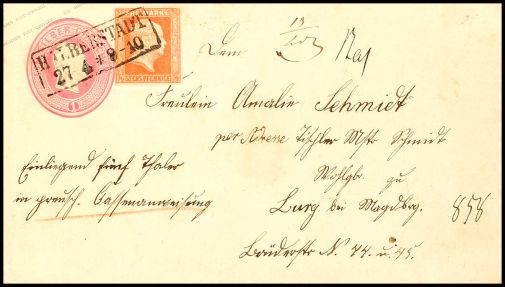 HALBERSTADT
27 4 * 9-10
Dem
Fräulein Amalie Schmidt
per Adresse Tischler Mstr Schmidt
Wohlgb.
zu
Burg bei Magdbrg.
858
N. 44. u. 45.
Einliegend fünf Thaler
in preuß. Cassenanweisung